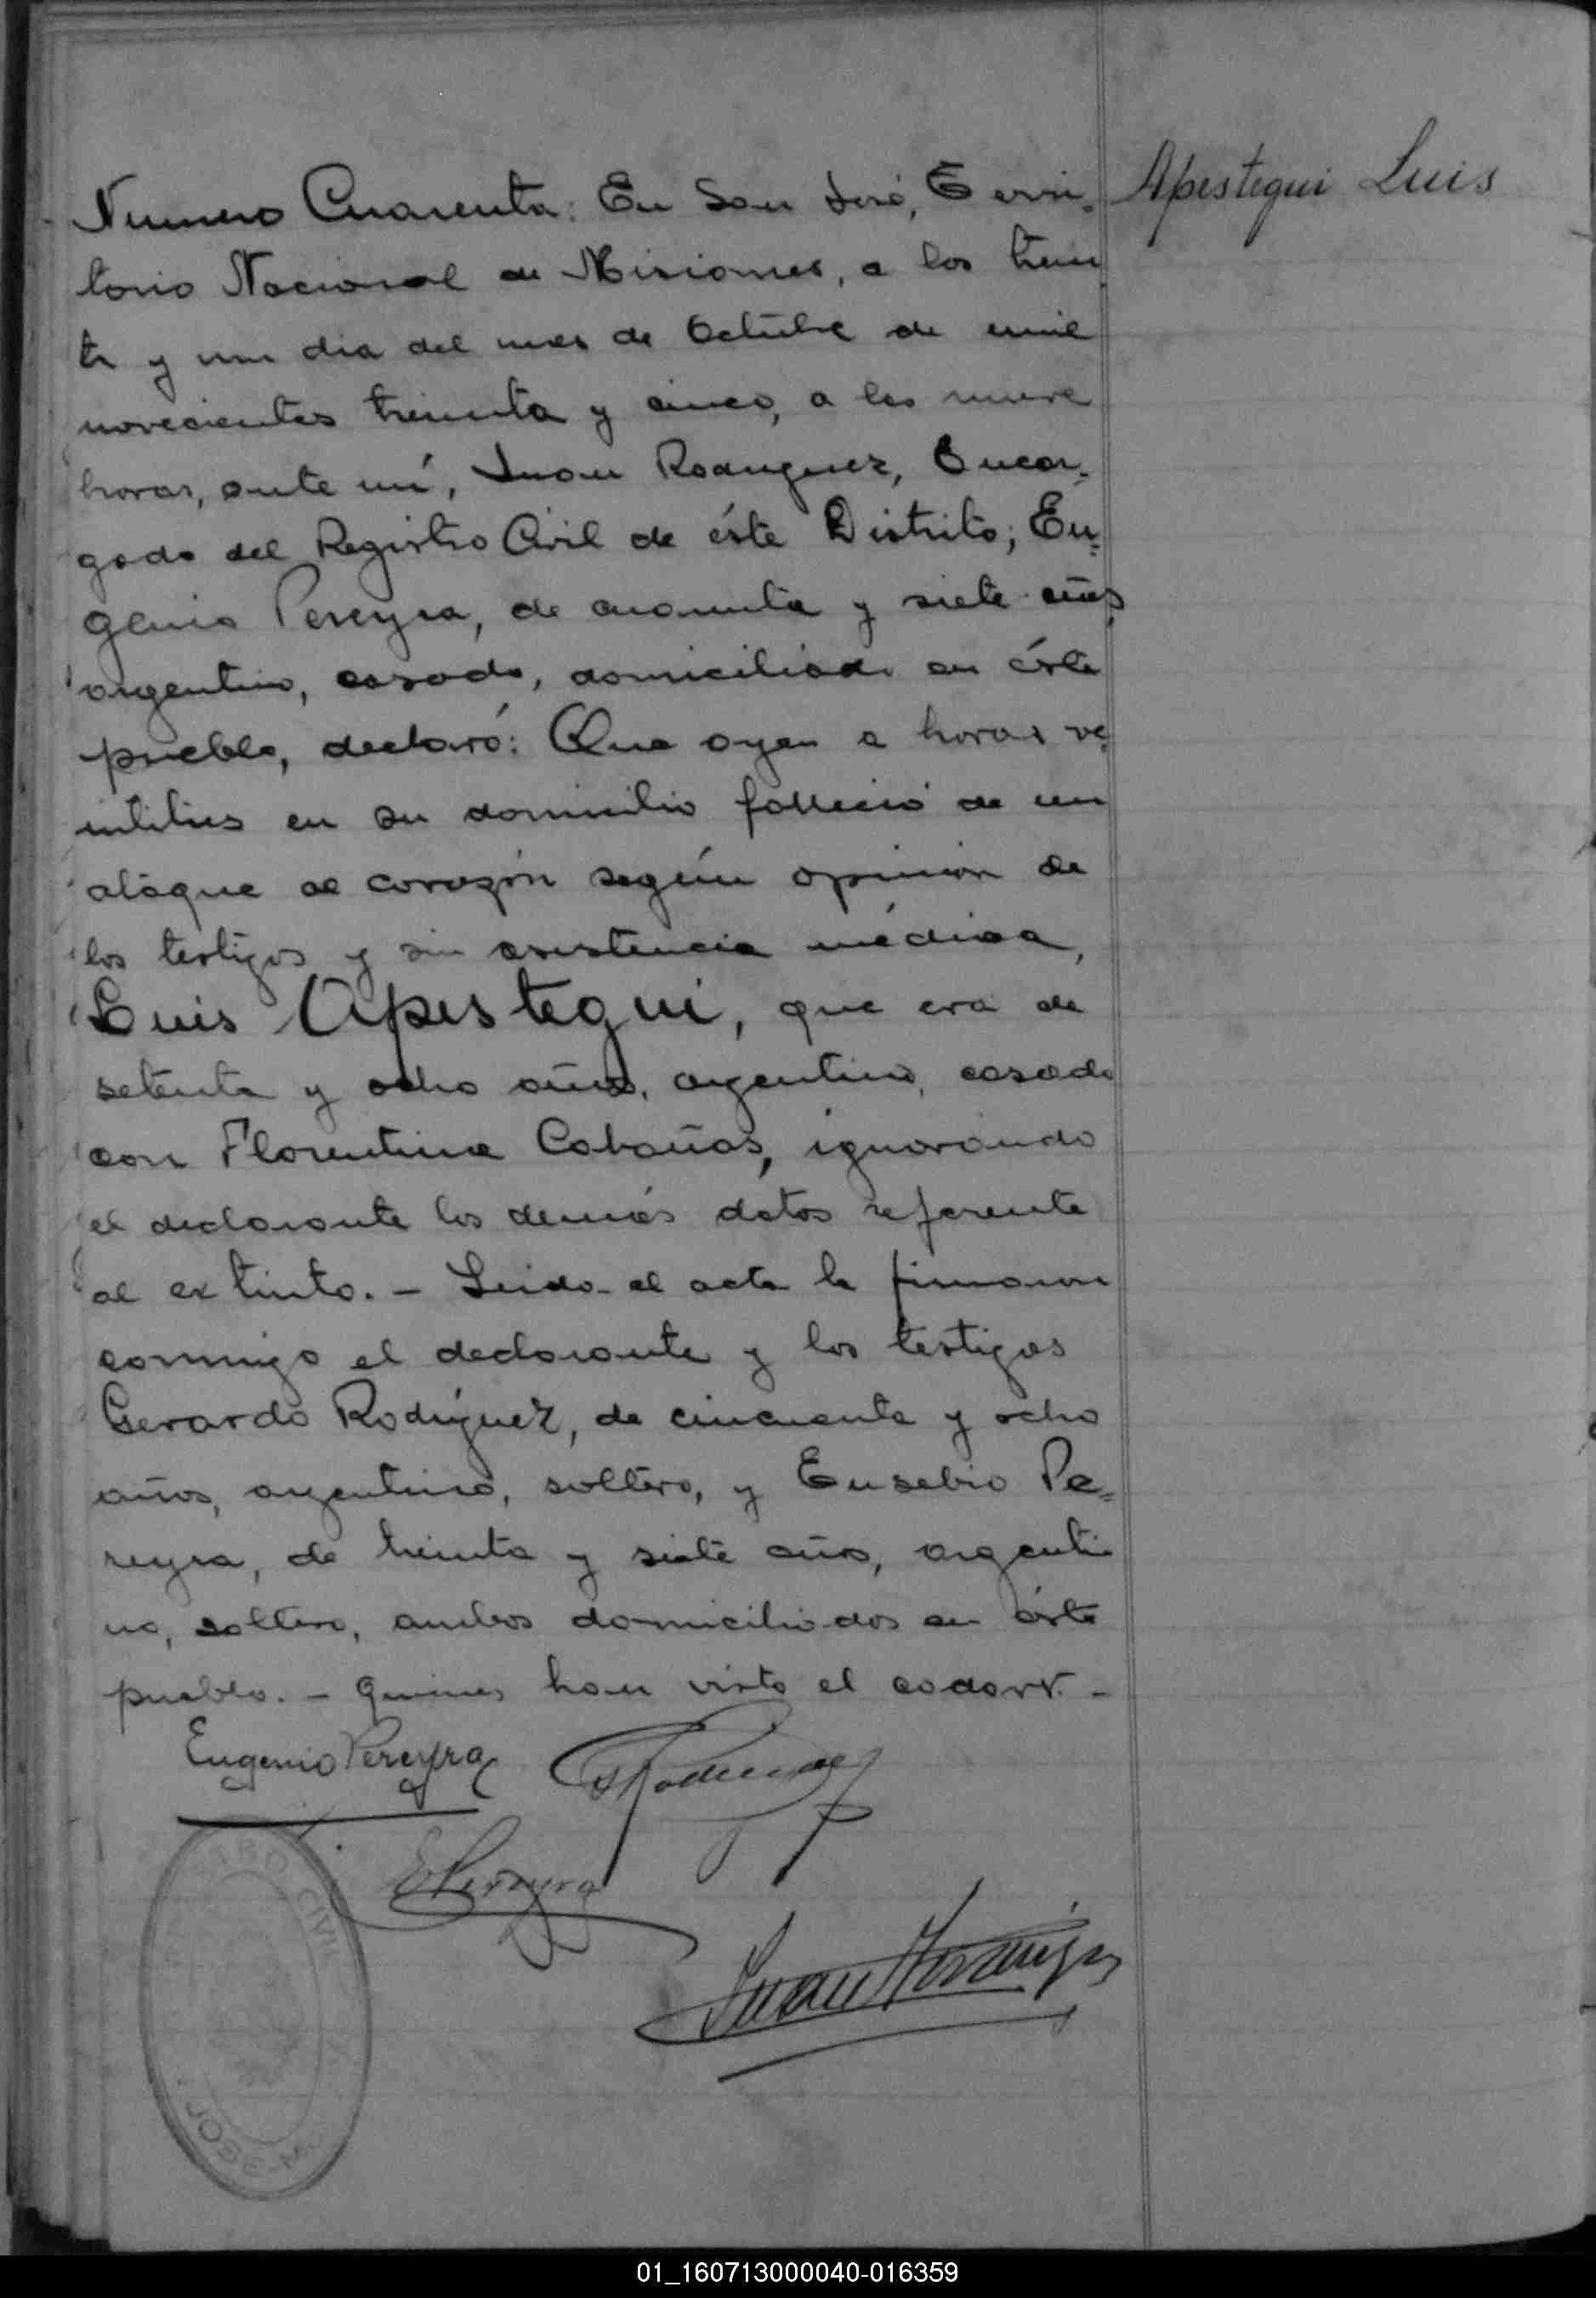 Apestegui Luis
Numero Cuarenta: En San José, Terri-
torio Nacional de Misiones, a los trein
ta y un dia del mes de Octubre de mil
novecientos treinta y cinco, a las nueve
horas, ante mí, Juan Rodriguez, Encar-
gado del Registro Civil de éste Distrito; Eu=
genio Pereyra, de cuarenta y siete años,
argentino, casado, domiciliado en éste
pueblo, declaró: Que ayer a horas ve
intitres en su domicilio falleció de un
ataque al corazón según opinion de
los testigos y sin asistencia médica,
Luis Apestegui, que era de
setenta y ocho años, argentino, casado
con Florentina Cabañas, ignorando
el declarante los demás datos referente
al extinto. - Leida el acta la firmaron
conmigo el declarante y los testigos
Gerardo Rodriguez, de cincuenta y ocho
años, argentino, soltero, y Eusebio Pe=
reyra, de treinta y siete años, argenti
no, soltero, ambos domiciliados en éste
pueblo. - Quienes han visto el cadavr. -
Eugenio Pereyra
E Pereyra
Juan
CIVIL
01_160713000040-016359